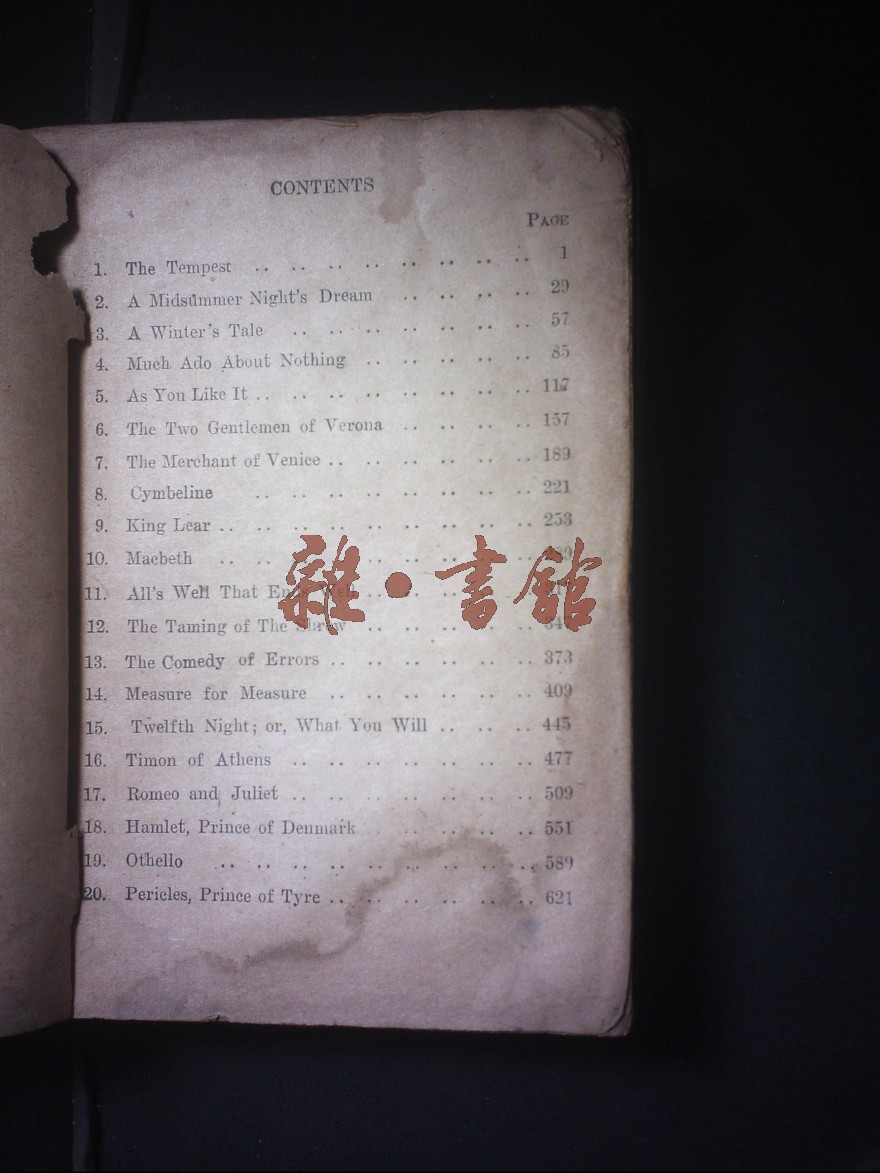 CONTENTS
PAGE
1. The Tempest .. .. .. .. .. .. .. .. 1
2. A Midsummer Night's Dream .. .. .. .. 29
3. A Winter's Tale .. .. .. .. .. .. .. 57
4. Much Ado About Nothing .. .. .. .. .. 85
5. As You Like It .. .. .. .. .. .. .. .. 117
6. The Two Gentlemen of Verona .. .. .. .. 157
7. The Merchant of Venice .. .. .. .. .. .. 189
8. Cymbeline .. .. .. .. .. .. .. .. 221
9. King Lear .. .. .. .. .. .. .. .. .. 253
10. Macbeth .. .. .. .. .. .. ..
11. All's Well That Ends Well .. .. .. ..
12. The Taming of The Shrew .. .. .. .. ..
13. The Comedy of Errors .. .. .. .. .. .. 373
14. Measure for Measure .. .. .. .. .. .. 409
15. Twelfth Night; or, What You Will .. .. .. 445
16. Timon of Athens .. .. .. .. .. .. .. 477
17. Romeo and Juliet .. .. .. .. .. .. .. 509
18. Hamlet, Prince of Denmark .. .. .. .. .. 551
19. Othello .. .. .. .. .. .. .. .. .. 589
20. Pericles, Prince of Tyre .. .. .. .. .. .. 621
雜·書館